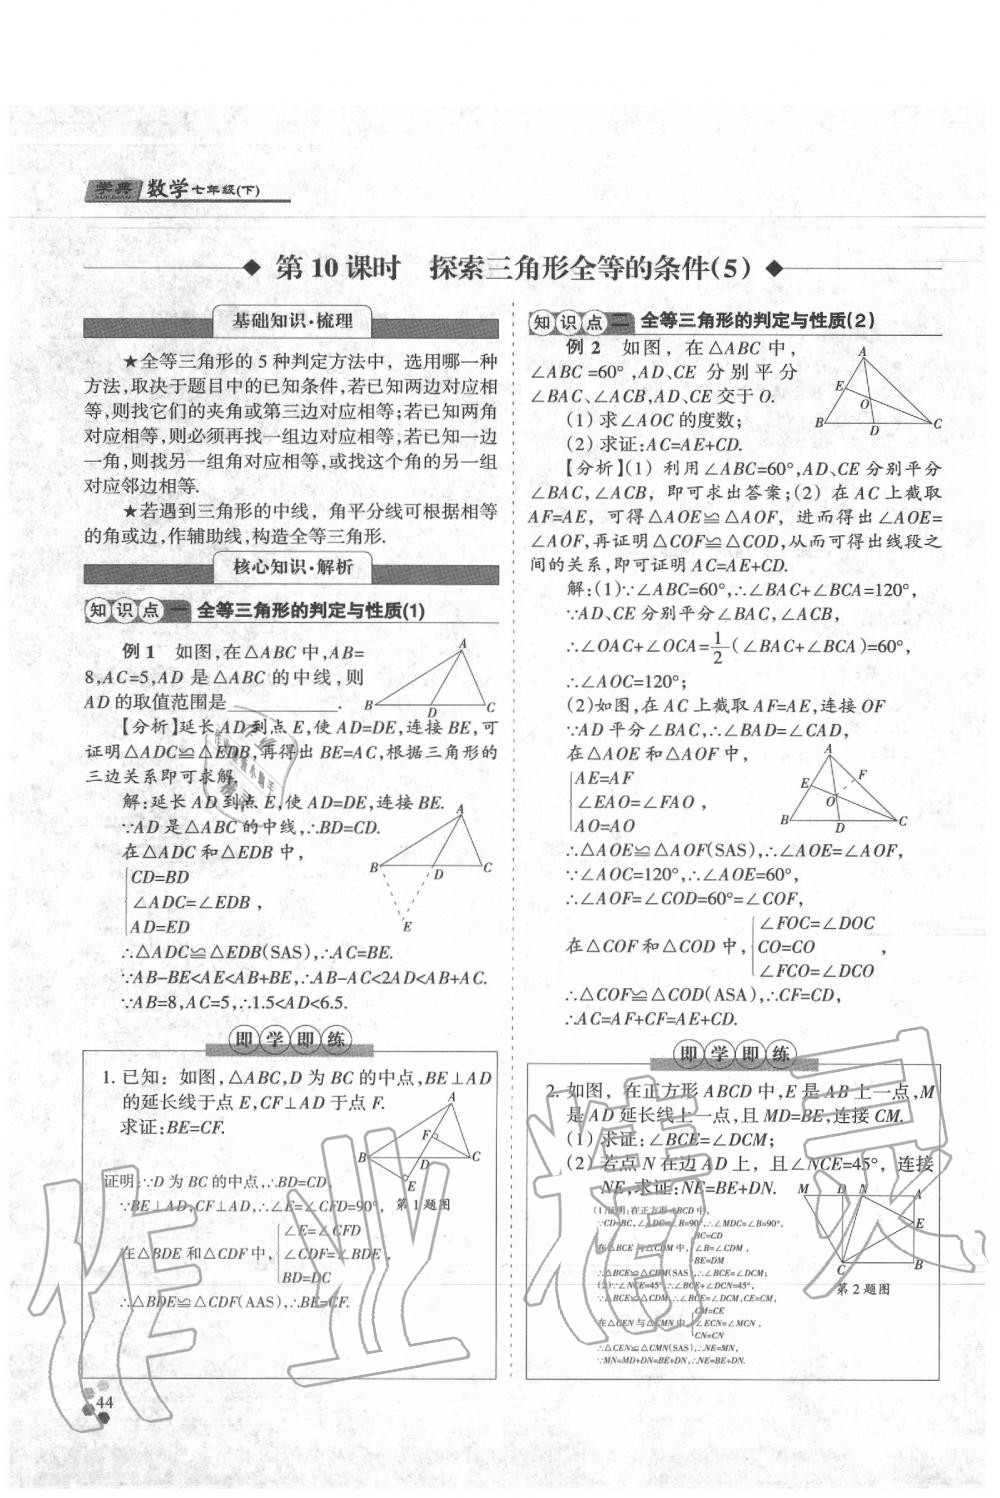 学典 数学七年级(下)
第10课时 探索三角形全等的条件(5)
基础知识·梳理
★全等三角形的5种判定方法中，选用哪一种
方法,取决于题目中的已知条件,若已知两边对应相
等,则找它们的夹角或第三边对应相等;若已知两角
对应相等,则必须再找一组边对应相等,若已知一边
一角,则找另一组角对应相等,或找这个角的另一组
对应邻边相等.
★若遇到三角形的中线，角平分线可根据相等
的角或边,作辅助线,构造全等三角形.
核心知识·解析
知识点一 全等三角形的判定与性质(1)
例1 如图,在△ABC中,AB=
8,AC=5,AD是△ABC的中线,则
AD的取值范围是__________.
A
B
D
C
【分析】延长AD到点E,使AD=DE,连接BE,可
证明△ADC≌△EDB,再得出BE=AC,根据三角形的
三边关系即可求解.
解:延长AD到点E,使AD=DE,连接BE.
∵AD是△ABC的中线,∴BD=CD.
在△ADC和△EDB中,
CD=BD
∠ADC=∠EDB,
AD=ED
A
B
D
C
E
∴△ADC≌△EDB(SAS),∴AC=BE.
∵AB-BE<AE<AB+BE,∴AB-AC<2AD<AB+AC.
∵AB=8,AC=5,∴1.5<AD<6.5.
即学即练
1. 已知：如图,△ABC,D为BC的中点,BE⊥AD
的延长线于点E,CF⊥AD于点F.
求证:BE=CF.
A
F
B
D
C
E
第1题图
证明:∵D为BC的中点,∴BD=CD.
∵BE⊥AD,CF⊥AD,∴∠E=∠CFD=90°,
在△BDE和△CDF中,
∠E=∠CFD
∠CDF=∠BDE,
BD=DC
∴△BDE≌△CDF(AAS),∴BE=CF.
44
知识点二 全等三角形的判定与性质(2)
例2 如图，在△ABC中，
∠ABC=60°,AD、CE分别平分
∠BAC、∠ACB,AD、CE交于O.
(1)求∠AOC的度数;
(2)求证:AC=AE+CD.
A
E
O
B
D
C
【分析】(1)利用∠ABC=60°,AD、CE分别平分
∠BAC,∠ACB，即可求出答案;(2)在AC上截取
AF=AE，可得△AOE≌△AOF，进而得出∠AOE=
∠AOF,再证明△COF≌△COD,从而可得出线段之
间的关系,即可证明AC=AE+CD.
解:(1)∵∠ABC=60°,∴∠BAC+∠BCA=120°,
∵AD、CE分别平分∠BAC,∠ACB,
∴∠OAC+∠OCA=1/2(∠BAC+∠BCA)=60°,
∴∠AOC=120°;
(2)如图,在AC上截取AF=AE,连接OF
∵AD平分∠BAC,∴∠BAD=∠CAD,
在△AOE和△AOF中,
AE=AF
∠EAO=∠FAO,
AO=AO
A
F
E
O
B
D
C
∴△AOE≌△AOF(SAS),∴∠AOE=∠AOF,
∵∠AOC=120°,∴∠AOE=60°,
∴∠AOF=∠COD=60°=∠COF,
在△COF和△COD中,
∠FOC=∠DOC
CO=CO,
∠FCO=∠DCO
∴△COF≌△COD(ASA),∴CF=CD,
∴AC=AF+CF=AE+CD.
即学即练
2. 如图，在正方形ABCD中,E是AB上一点,M
是AD延长线上一点,且MD=BE,连接CM.
(1)求证:∠BCE=∠DCM;
(2)若点N在边AD上，且∠NCE=45°，连接
NE,求证:NE=BE+DN.
M
D
N
A
E
C
B
第2题图
(1)证明:在正方形ABCD中,
∵CD=BC,∠ADC=∠B=90°,∴∠MDC=∠B=90°,
在△BCE与△CDM中,
BC=CD
∠B=∠CDM,
BE=DM
∴△BCE≌△CDM(SAS),∴∠BCE=∠DCM;
(2)∵∠NCE=45°,∴∠BCE+∠DCN=45°,
∵△BCE≌△CDM,∴∠BCE=∠DCM,CE=CM,
在△CEN与△CMN中,
CM=CE
∠ECN=∠MCN,
CN=CN
∴△CEN≌△CMN(SAS),∴NE=MN,
∵MN=MD+DN=BE+DN,∴NE=BE+DN.
作业精灵